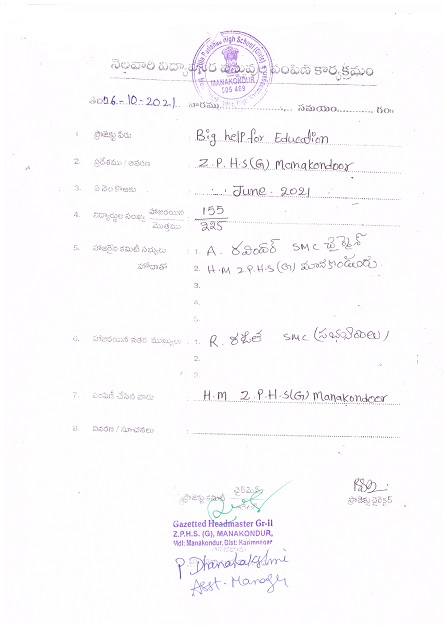 Zilla Parishad High School (Girls)
MANAKONDUR
505 469
నెలవారి విద్యా పంపిణి కార్యక్రమం
తేది 06-10-2021. వారము సమయం గం॥
1. ప్రాజెక్టు పేరు : Big help for Education
2. ప్రదేశము / వివరణ : Z.P.H.S(G) Manakondoor
3. ఏ నెల కొరకు : June. 2021
4. విద్యార్థుల సంఖ్య హాజరయిన / మొత్తము : 155 / 225
5. హాజరైన కమిటీ సభ్యులు : 1. A. రవీందర్ SMC చైర్మైన్
హోదాతో 2. H.M Z.P.H.S(G) మానకొండూరు
3.
4.
5.
6. హాజరయిన ఇతర ముఖ్యులు : 1. R. SMC
2.
3.
7. పంపిణీ చేసిన వారు : H.M Z.P.H.S(G) Manakondoor
8. వివరణ / సూచనలు :
ప్రాజెక్టు కమిటి చైర్మైన్
ప్రాజెక్టు డైరెక్టర్
Gazetted Headmaster Gr-II
Z.P.H.S. (G), MANAKONDUR,
Mdl: Manakondur, Dist: Karimnagar
P. Dhanalakshmi
Asst. Manager